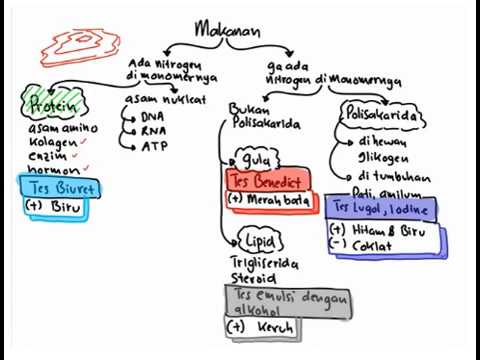 Makanan
Ada nitrogen
di monomernya
ga ada
nitrogen di monomernya
Protein
asam amino
kolagen
enzim
hormon
Tes Biuret
(+) Biru
asam nukleat
DNA
RNA
ATP
Bukan
Polisakarida
gula
Tes Benedict
(+) Merah bata
Lipid
Trigliserida
Steroid
Tes emulsi dengan
alkohol
(+) Keruh
Polisakarida
di hewan
glikogen
di tumbuhan
Pati, amilum
Tes Lugol, Iodine
(+) Hitam & Biru
(-) Coklat